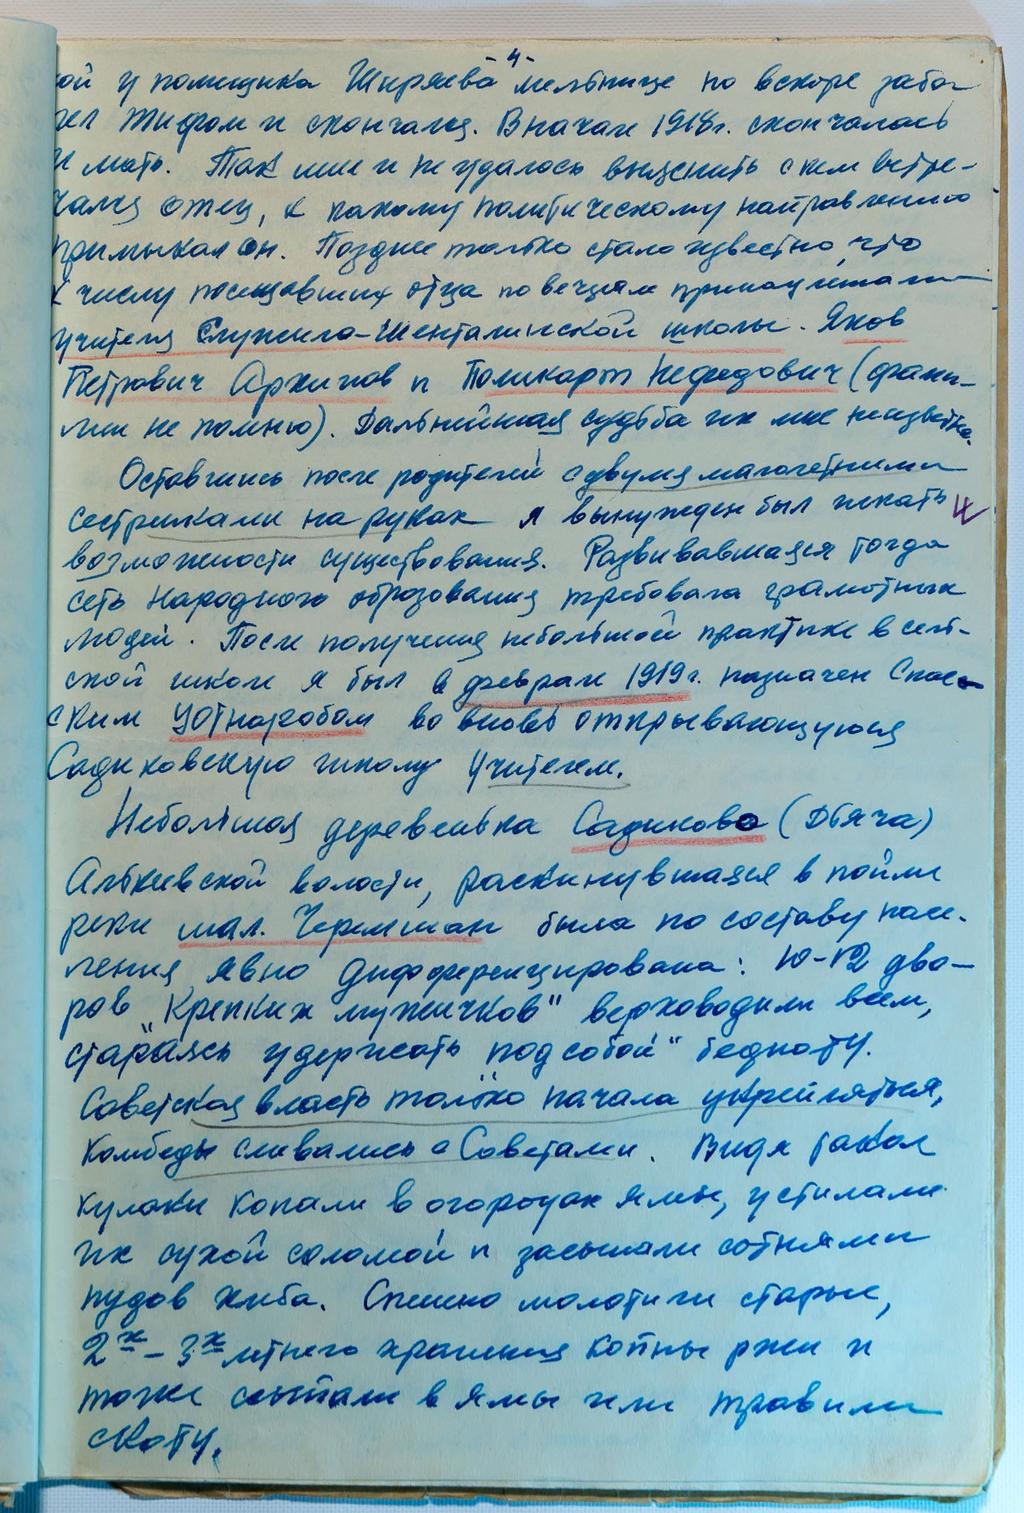 -4-
ой у помещика Ширяева мельнице но вскоре забо-
лел тифом и скончался. В начале 1918г. скончалась
и мать. Так мне и не удалось выяснить с кем встре-
чался отец, к какому политическому направлению
примыкал он. Позднее только стало известно, что
к числу посещавших отца по вечерам принадлежали
учителя Служило-Шенталинской школы. Яков
Петрович Архипов и Поликарп Нефедович (фами-
лии не помню). Дальнейшая судьба их мне неизвестна.
Оставшись после родителей с двумя малолетними
сестрами на руках я вынужден был искать
возможности существования. Развивавшаяся тогда
сеть народного образования требовала грамотных
людей. После получения небольшой практики в сель-
ской школе я был в феврале 1919г. назначен Спас-
ским УОтнаробом во вновь открывающуюся
Садиковскую школу учителем.
Небольшая деревенька Садиково (Дьяча)
Алькеевской волости, раскинувшаяся в пойме
реки мал. Черемшан была по составу насе-
ления явно дифференцирована: 10-12 дво-
ров „крепких мужичков" верховодили всем,
стараясь удержать „под собой" бедноту.
Советская власть только начала укрепляться,
Комбеды сливались с Советами. Видя такое
кулаки копали в огородах ямы, устилали
их сухой соломой и засыпали сотнями
пудов хлеба. Спешно молотили старые,
2х-3х летнего хранения копны ржи и
тоже ссыпали в ямы или травили
скоту.